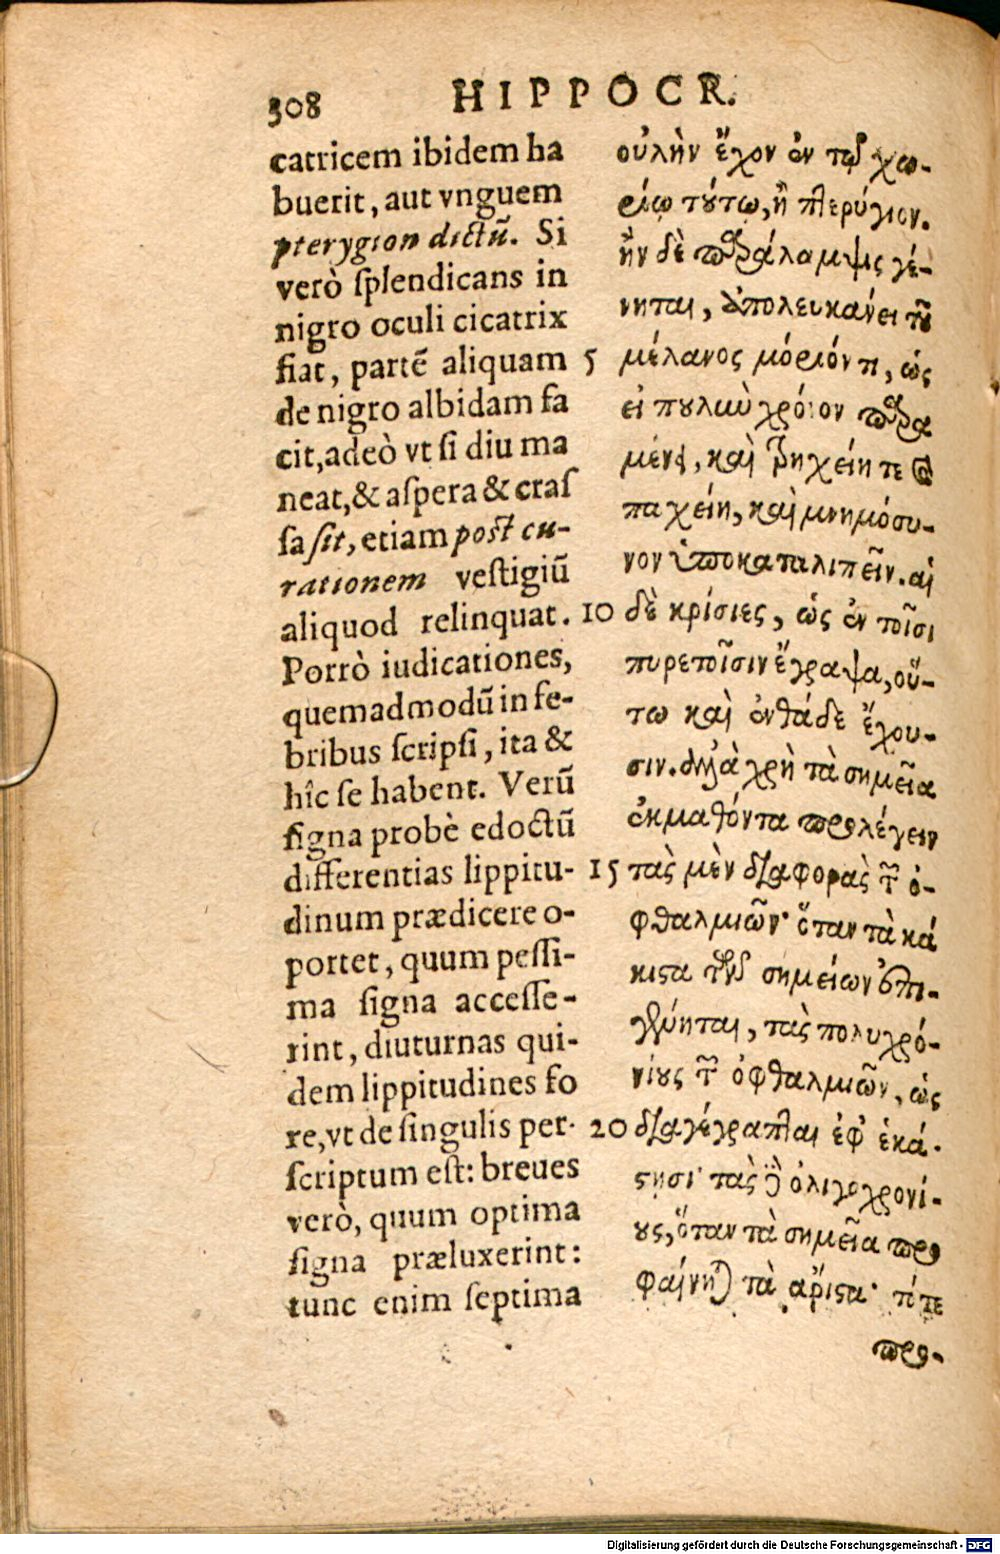 308 HIPPOCR.
catricem ibidem ha
buerit, aut vnguem
pterygion dictũ. Si
verò ſplendicans in
nigro oculi cicatrix
fiat, partẽ aliquam
de nigro albidam fa
cit, adeò vt ſi diu ma
neat, & aſpera & craſ
ſa ſit, etiam poſt cu-
rationem veſtigiũ
aliquod relinquat.
Porrò iudicationes,
quemadmodũ in fe-
bribus ſcripſi, ita &
hîc ſe habent. Verũ
ſigna probè edoctũ
differentias lippitu-
dinum prædicere o-
portet, quum peſſi-
ma ſigna acceſſe-
rint, diuturnas qui-
dem lippitudines fo
re, vt de ſingulis per-
ſcriptum eſt: breues
verò, quum optima
ſigna præluxerint:
tunc enim ſeptima
οὐλὴν ἔχον ἐν τῷ χω-
ρίῳ τούτῳ, ἢ πτερύγιον.
ἢν δὲ παράλαμψις γέ-
νηται, ἀπολευκαίνει τοῦ
5 μέλανος μόριόν τι, ὡς
εἰ πουλὺ χρόνον παρα
μένοι, καὶ τρηχείη τε καὶ
παχείη, καὶ μνημόσυ-
νον ὑποκαταλιπεῖν. αἱ
10 δὲ κρίσιες, ὡς ἐν τοῖσι
πυρετοῖσιν ἔγραψα, οὕ-
τω καὶ ἐνθάδε ἔχου-
σιν. ἀλλὰ χρὴ τὰ σημεῖα
ἐκμαθόντα προλέγειν
15 τὰς μὲν διαφορὰς τῶν ὀ-
φθαλμιῶν· ὅταν τὰ κά
κιστα τῶν σημείων ἐπι-
γένηται, τὰς πολυχρο-
νίους τῶν ὀφθαλμιῶν, ὡς
20 διαγέγραπται ἐφ' ἑκά-
στησι· τὰς δὲ ὀλιγοχρονί-
ους, ὅταν τὰ σημεῖα προ
φαίνηται τὰ ἄριστα· τότε
προ-
Digitalisierung gefördert durch die Deutsche Forschungsgemeinschaft - DFG